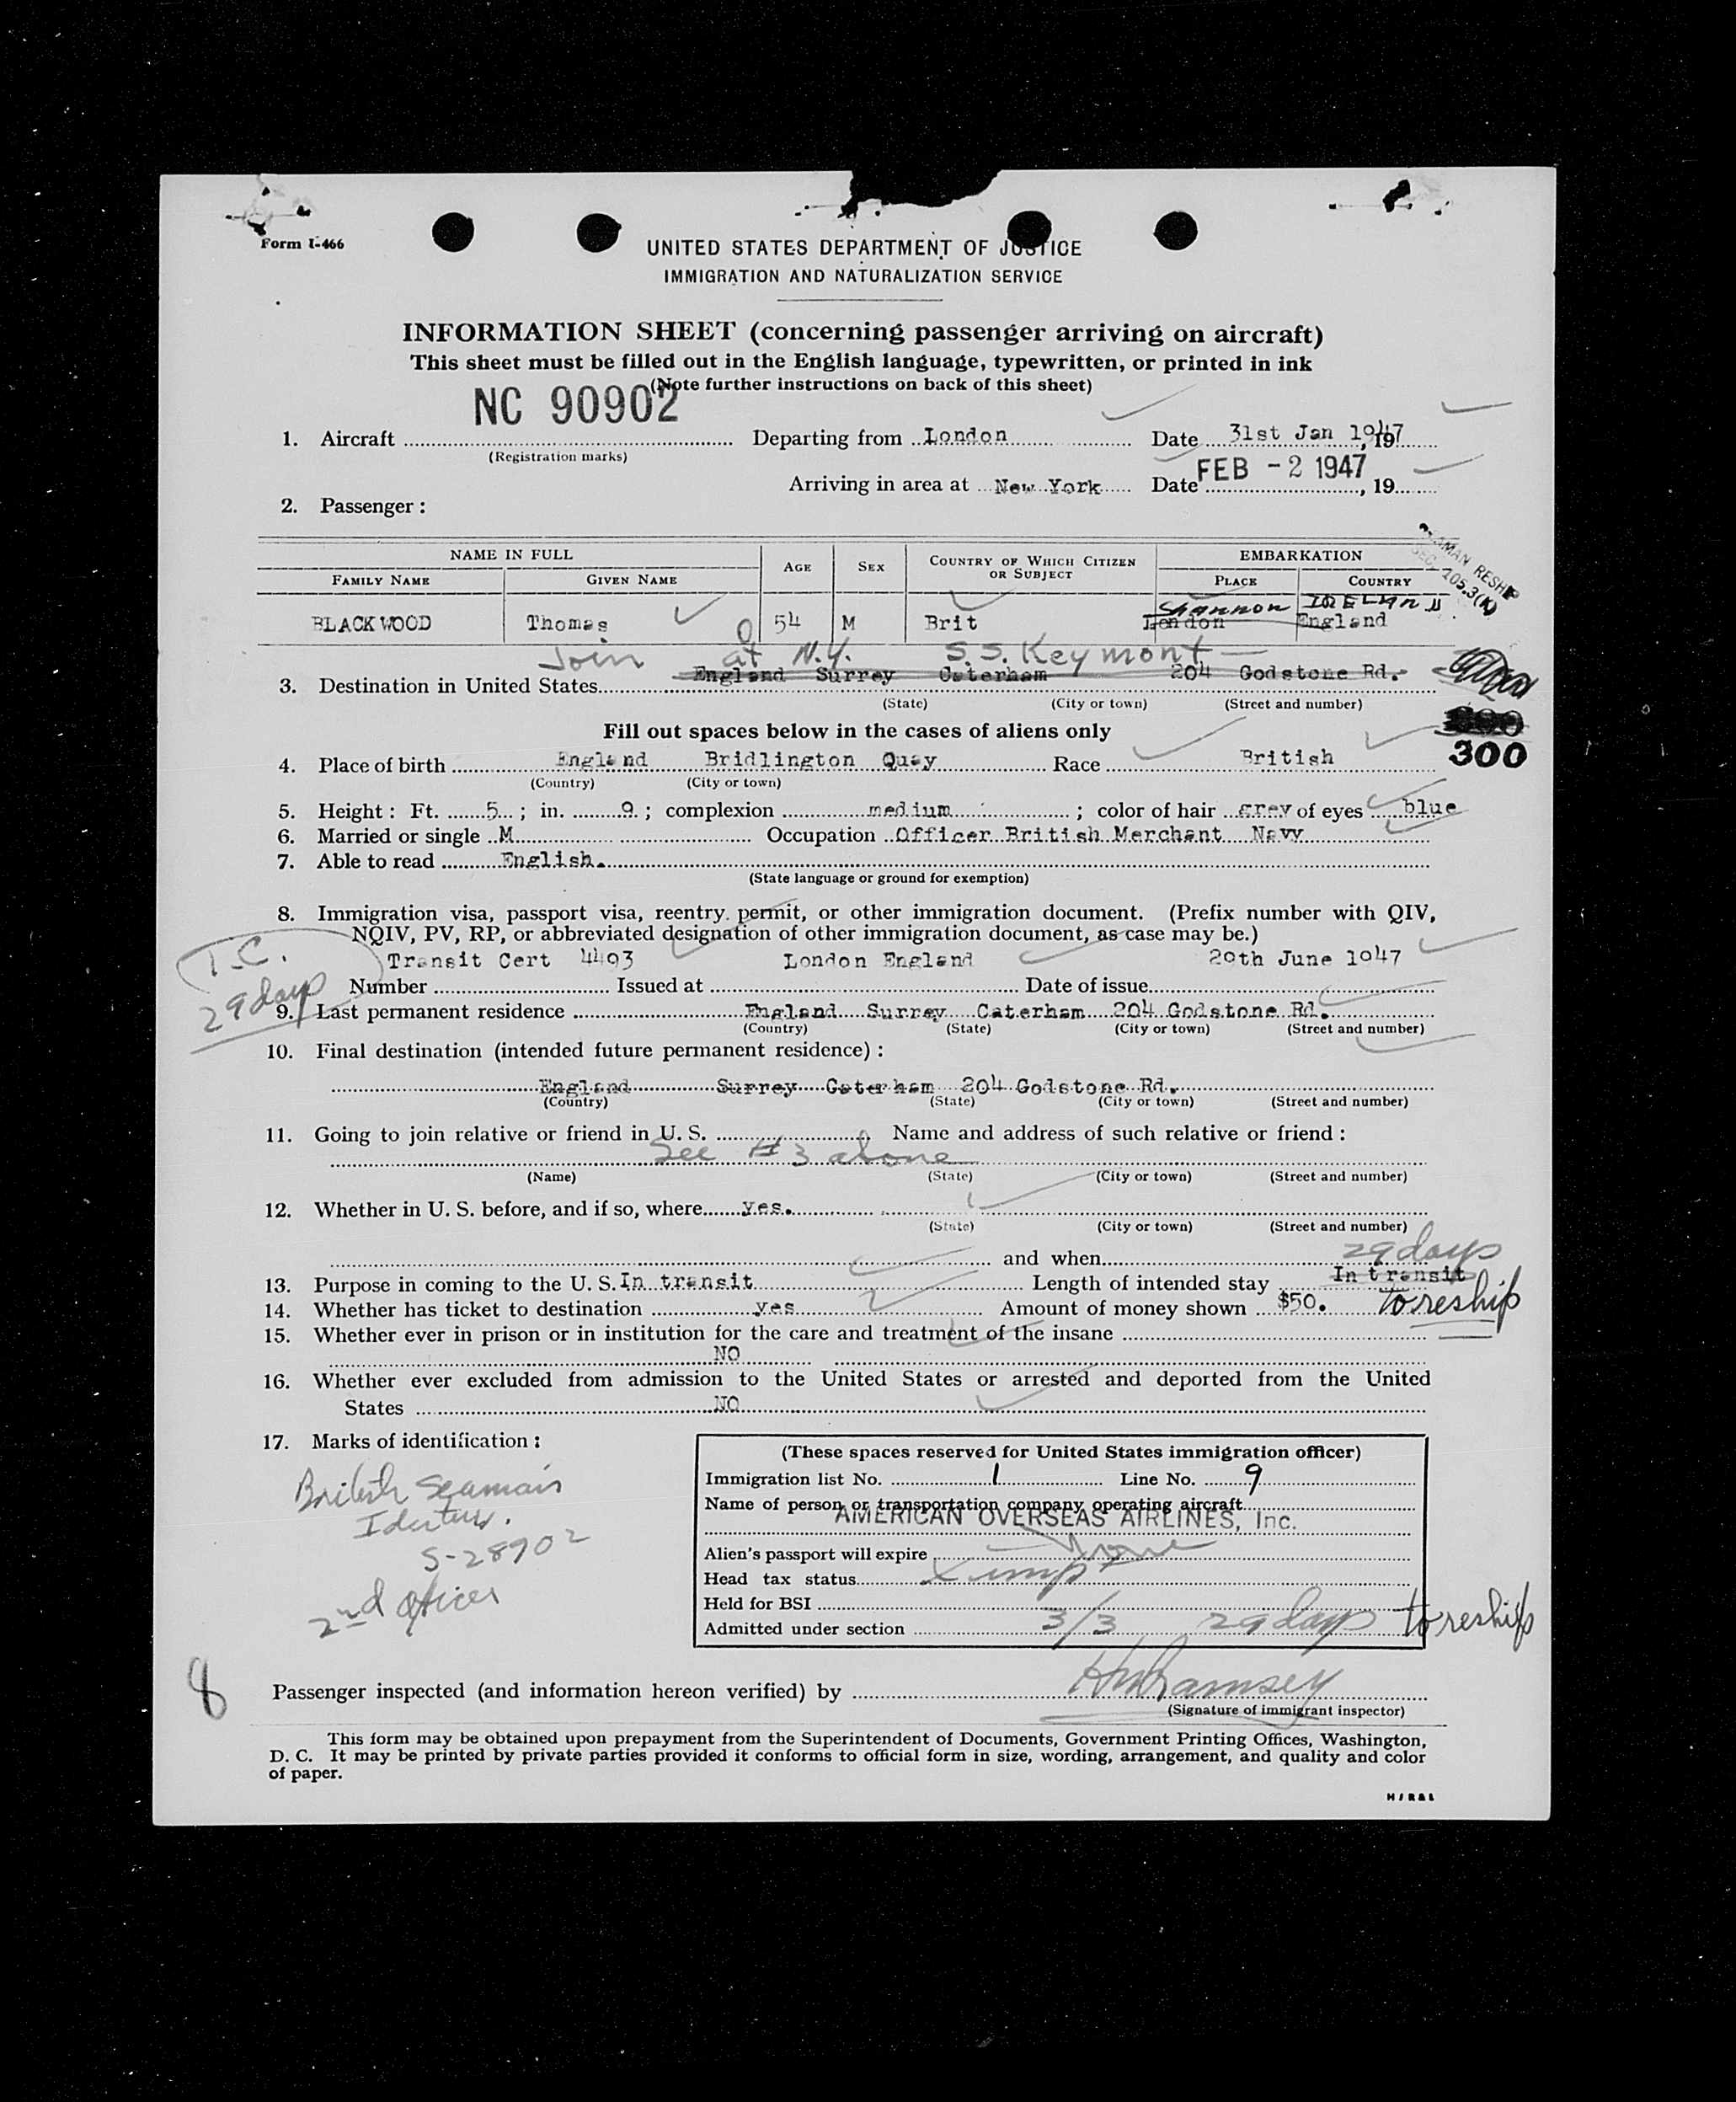 Form I-466
UNITED STATES DEPARTMENT OF JUSTICE
IMMIGRATION AND NATURALIZATION SERVICE
INFORMATION SHEET (concerning passenger arriving on aircraft)
This sheet must be filled out in the English language, typewritten, or printed in ink
(Note further instructions on back of this sheet)
NC 90902
1. Aircraft Departing from London Date 31st Jan 1947, 19
(Registration marks)
Arriving in area at New York Date FEB - 2 1947, 19
2. Passenger:
SEAMAN RESHIP
SEC. 105.3(K)
NAME IN FULL AGE SEX COUNTRY OF WHICH CITIZEN OR SUBJECT EMBARKATION
FAMILY NAME GIVEN NAME PLACE COUNTRY
Shannon IRELAND
BLACKWOOD Thomas 54 M Brit London England
Join at N.Y. S.S. Keymont
3. Destination in United States England Surrey Caterham 204 Godstone Rd.
(State) (City or town) (Street and number)
Fill out spaces below in the cases of aliens only
300
4. Place of birth England Bridlington Quay Race British
(Country) (City or town)
5. Height: Ft. 5; in. 9; complexion medium; color of hair grey of eyes blue
6. Married or single M Occupation Officer British Merchant Navy
7. Able to read English.
(State language or ground for exemption)
8. Immigration visa, passport visa, reentry permit, or other immigration document. (Prefix number with QIV,
NQIV, PV, RP, or abbreviated designation of other immigration document, as case may be.)
T.C.
29 days
Transit Cert 4493 London England 20th June 1947
Number Issued at Date of issue
9. Last permanent residence England Surrey Caterham 204 Godstone Rd.
(Country) (State) (City or town) (Street and number)
10. Final destination (intended future permanent residence):
England Surrey Caterham 204 Godstone Rd.
(Country) (State) (City or town) (Street and number)
11. Going to join relative or friend in U. S. Name and address of such relative or friend:
See #3 above
(Name) (State) (City or town) (Street and number)
12. Whether in U. S. before, and if so, where yes.
(State) (City or town) (Street and number)
and when
29 days
13. Purpose in coming to the U. S. In transit Length of intended stay In transit
to reship
14. Whether has ticket to destination yes Amount of money shown $50.
15. Whether ever in prison or in institution for the care and treatment of the insane
NO
16. Whether ever excluded from admission to the United States or arrested and deported from the United
States NO
17. Marks of identification:
British Seaman's
Identity.
S-28902
2nd Officer
(These spaces reserved for United States immigration officer)
Immigration list No. 1 Line No. 9
Name of person or transportation company operating aircraft
AMERICAN OVERSEAS AIRLINES, Inc.
Alien's passport will expire None
Head tax status Xempt
Held for BSI
Admitted under section 3/3 29 days to reship
8
Passenger inspected (and information hereon verified) by HM Ramsey
(Signature of immigrant inspector)
This form may be obtained upon prepayment from the Superintendent of Documents, Government Printing Offices, Washington,
D. C. It may be printed by private parties provided it conforms to official form in size, wording, arrangement, and quality and color
of paper.